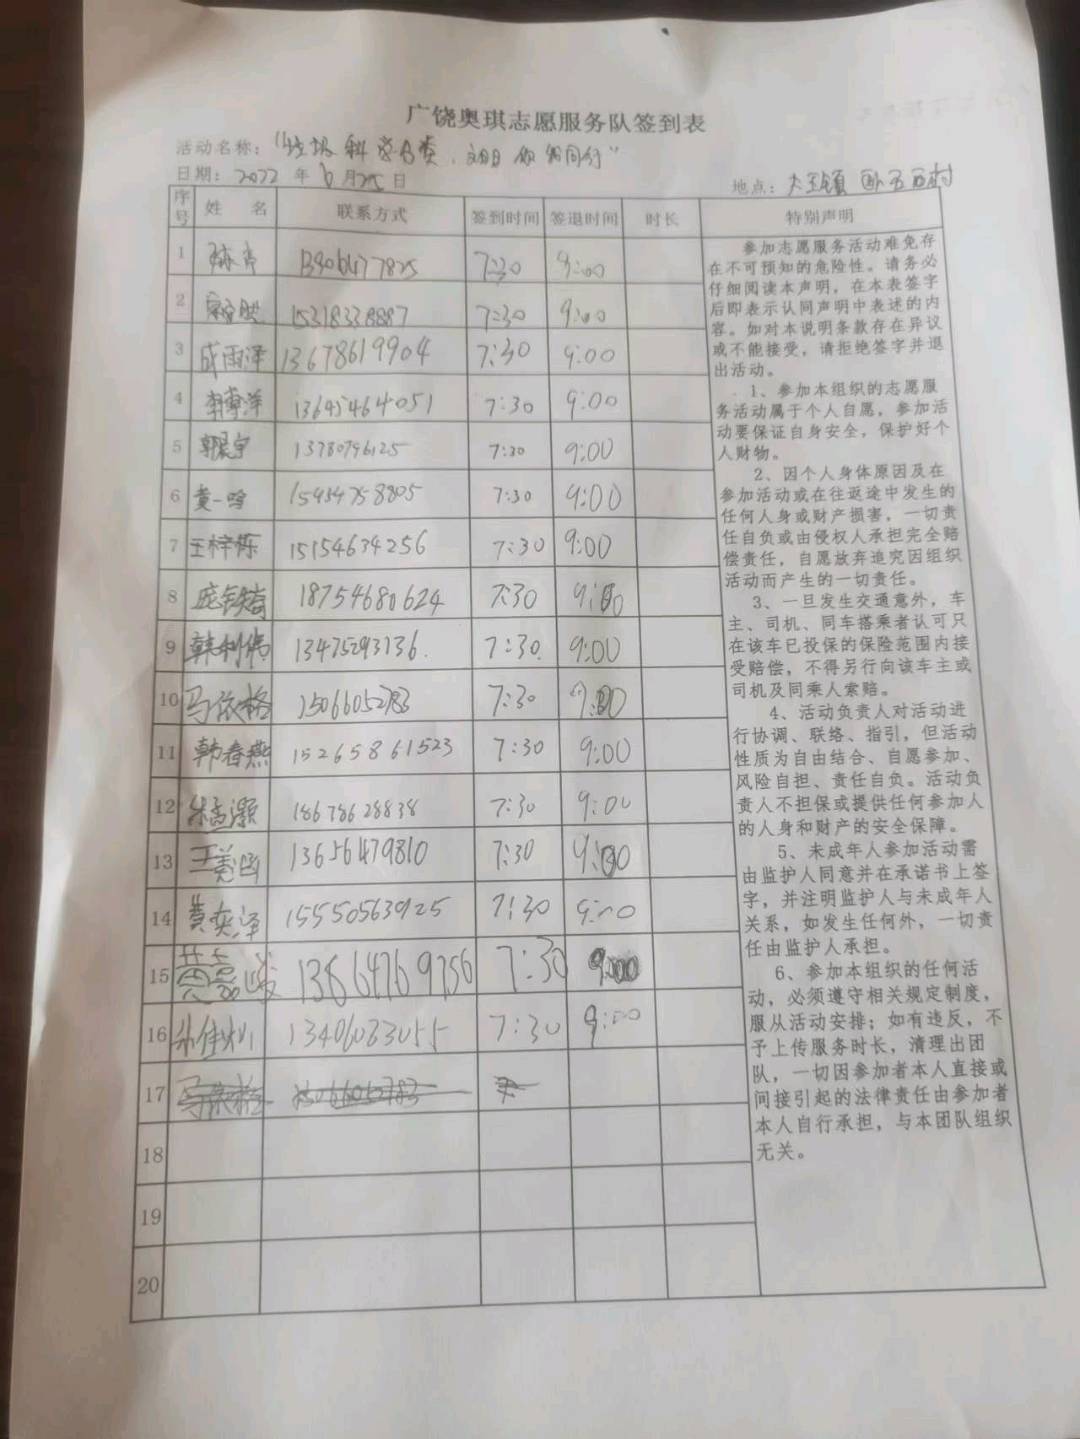 广饶奥琪志愿服务队签到表
活动名称：“垃圾科学分类，文明你我同行”
日期：2022 年 6 月 25 日
地点：大王镇
序号 姓 名 联系方式 签到时间 签退时间 时长 特别声明
1 13906477825 7:30 9:00
2 15318338887 7:30 9:00
3 成雨泽 13678619904 7:30 9:00
4 李博洋 13645464051 7:30 9:00
5 郭晨宇 13780746125 7:30 9:00
6 黄一晗 15454758805 7:30 9:00
7 王梓栎 15154634256 7:30 9:00
8 18754680624 7:30 9:00
9 韩利伟 13475293136. 7:30 9:00
10 马依格 15066052783 7:30 9:00
11 韩春燕 15265861523 7:30 9:00
12 18678628838 7:30 9:00
13 王美涵 13656479810 7:30 9:00
14 黄奕泽 15550563925 7:30 9:00
15 7:30 9:00
16 13406083055 7:30 9:00
17
18
19
20
参加志愿服务活动难免存
在不可预知的危险性。请务必
仔细阅读本声明，在本表签字
后即表示认同声明中表述的内
容。如对本说明条款存在异议
或不能接受，请拒绝签字并退
出活动。
1、参加本组织的志愿服
务活动属于个人自愿，参加活
动要保证自身安全，保护好个
人财物。
2、因个人身体原因及在
参加活动或在往返途中发生的
任何人身或财产损害，一切责
任自负或由侵权人承担完全赔
偿责任，自愿放弃追究因组织
活动而产生的一切责任。
3、一旦发生交通意外，车
主、司机、同车搭乘者认可只
在该车已投保的保险范围内接
受赔偿，不得另行向该车主或
司机及同乘人索赔。
4、活动负责人对活动进
行协调、联络、指引，但活动
性质为自由结合、自愿参加、
风险自担、责任自负。活动负
责人不担保或提供任何参加人
的人身和财产的安全保障。
5、未成年人参加活动需
由监护人同意并在承诺书上签
字，并注明监护人与未成年人
关系，如发生任何外，一切责
任由监护人承担。
6、参加本组织的任何活
动，必须遵守相关规定制度，
服从活动安排；如有违反，不
予上传服务时长，清理出团
队，一切因参加者本人直接或
间接引起的法律责任由参加者
本人自行承担，与本团队组织
无关。